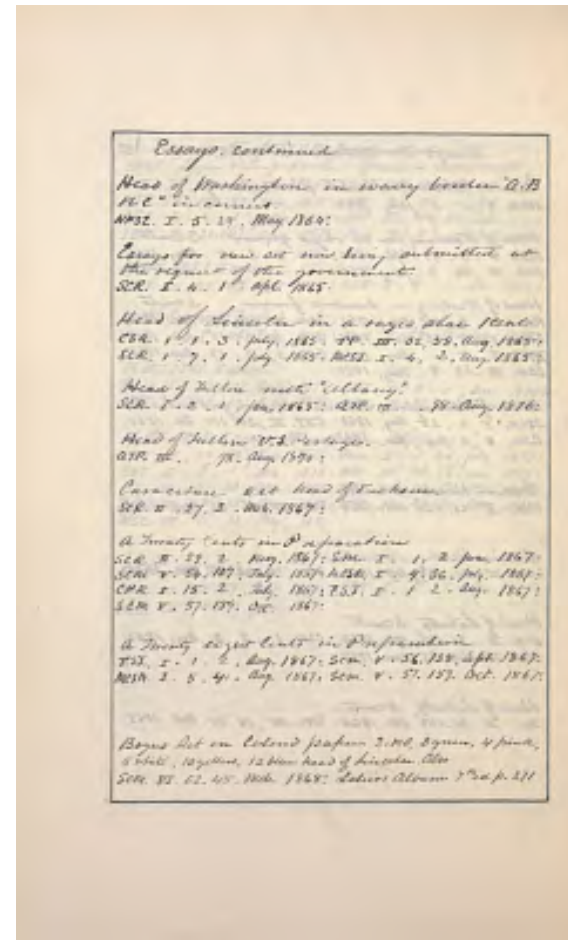 Essays, continued
Head of Washington in wavy border "A.B
N.C" in corners.
I. 5. 29. May 1864:
Essays for new set now being submitted at
the request of the government.
SCR. I. 4. 1. Apl. 1865
Head of Lincoln in a
CSR. 1. 1. 3. July. 1865. TP. III. 32, 38. Aug. 1865:
SCR. 1. 7. 1. July 1865. I. 4. 2. Aug. 1865:
Head of with "Albany".
SCR. I. 2. 1. Jan. 1865: III. 78. Aug. 1870:
Head of U.S. Postage.
III. 78. Aug. 1870:
set head of
SCR. II. 27. 2. 1867:
A Twenty Cents in Preparation
SCR. II. 29. 2. 1867: SM. I. 1. 2. 1867:
SCM. V. 54. 107. July. 1867. I. 4. 36. July. 1867:
I. 15. 2. July. 1867: TSJ. I. 1. 2. Aug. 1867:
SCM. V. 57. 157. Oc. 1867.
A Twenty eight Cents in Preparation
TSJ. I. 1. 2. Aug. 1867: SCM. V. 56. 138. Sept. 1867:
I. 5. 41. Aug. 1867: SCM. V. 57. 157. Oct. 1867.
Bogus Set on Colored paper 2 red, 3 green, 4 pink,
white, 10 yellow, 12 blue head of Lincoln. Also
SCM. VI. 62. 45. 1868: Album 7" ed p. 271